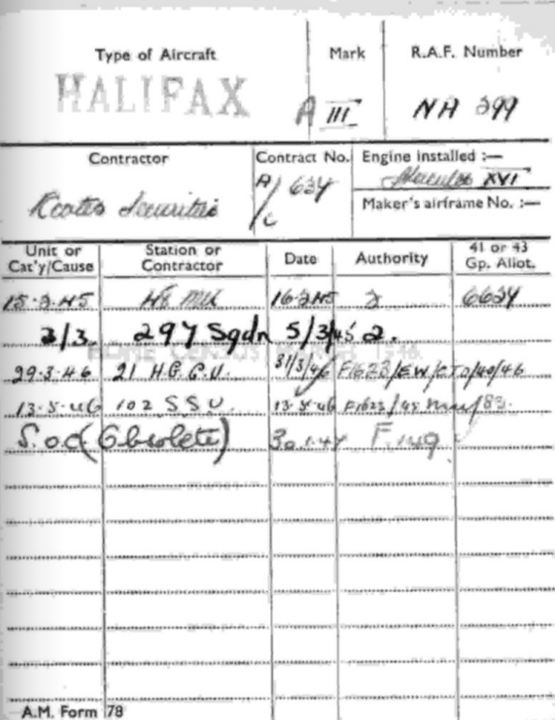 Type of Aircraft Mark R.A.F. Number
HALIFAX A III NA 299
Contractor Contract No. Engine installed :—
Rootes Securities A/c 637 Hercules XVI
Maker's airframe No. :—
Unit or Cat'y/Cause Station or Contractor Date Authority 41 or 43 Gp. Allot.
15-2-45 MU 16-2-45 2 6624
3/3. 297 Sqdn 5/3/45 2.
29-3-46 21 H.G.C.U. 31/3/46 F1623/EW/CTO/40/46
13-5-46 102 SSU. 13-5-46 F1623/45 83
S.O.C (Obsolete) 30.1.47 F.149
A.M. Form 78